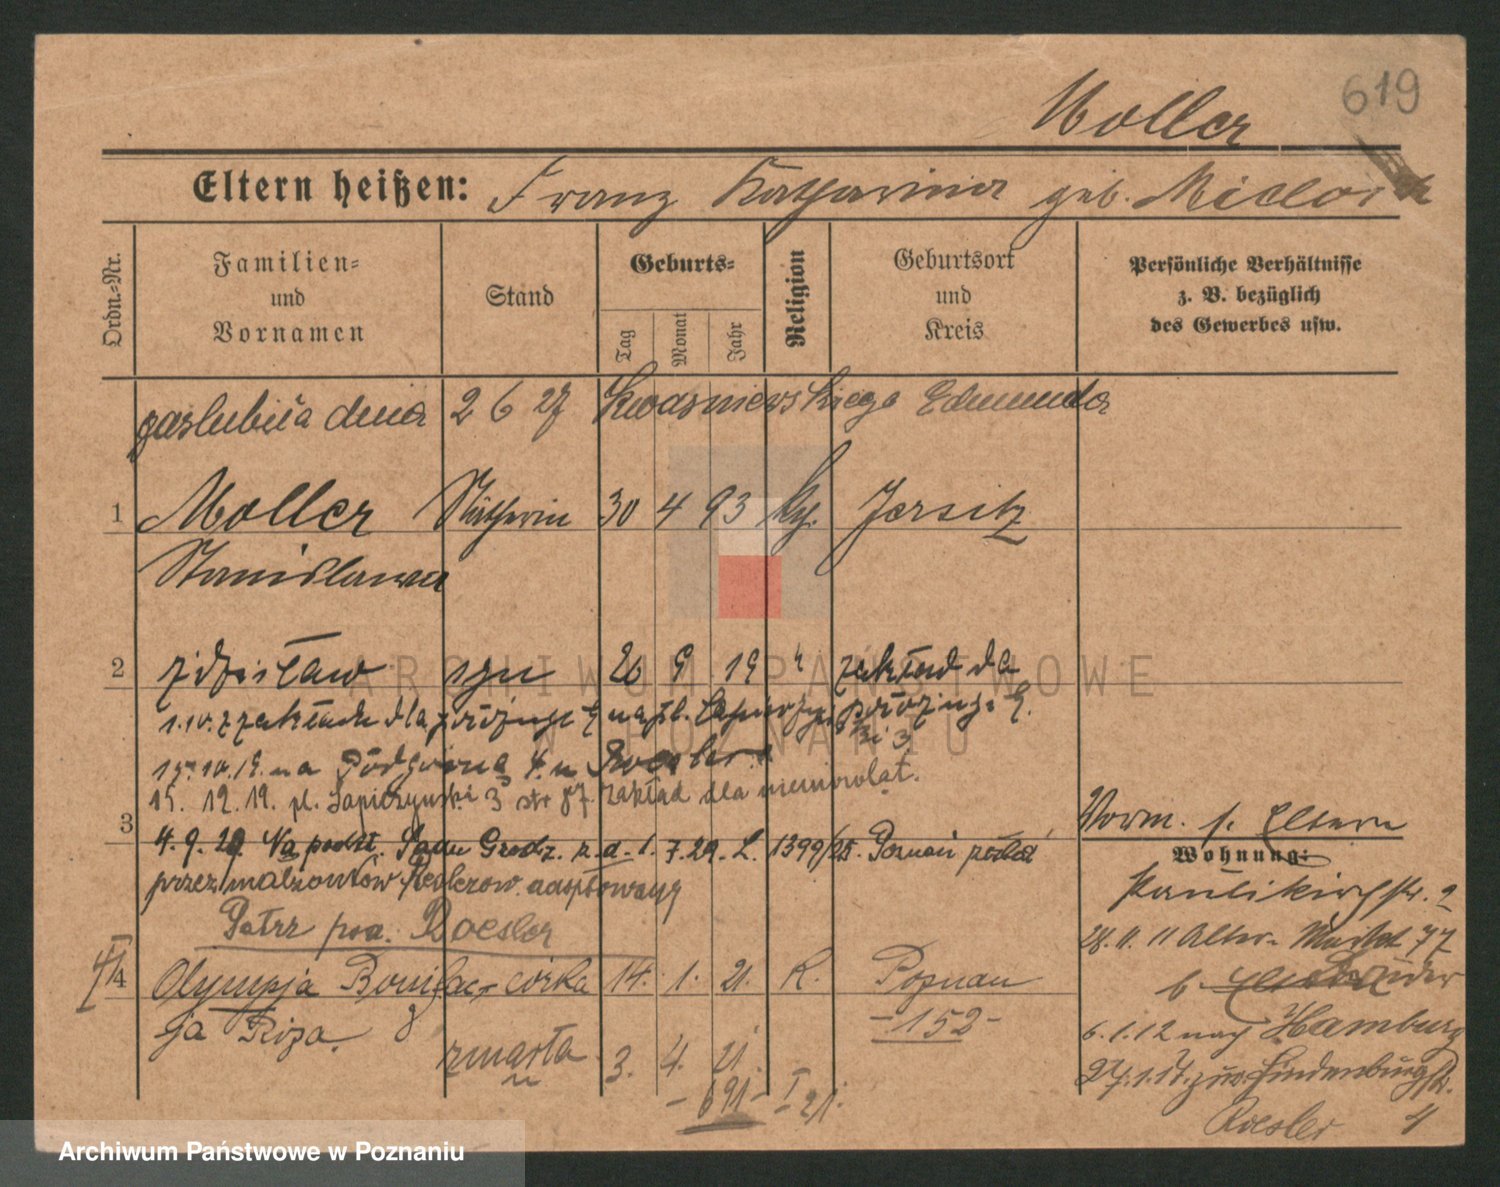 619
Moller
Eltern heißen: Franz Katharina geb.
Ordn.-Nr.
Familien-
und
Vornamen
Stand
Geburts-
Tag
Monat
Jahr
Religion
Geburtsort
und
Kreis
Persönliche Verhältnisse
z. B. bezüglich
des Gewerbes usw.
zaślubiła dnia 2 6 27 Kwasniewskiego Edmunda
1 Moller 30 4 93 Jersitz
Stanislawa
2 Zdzisław syn 26 9 19 zakład dla
1.10. z zakładu dla
na Roesler
15. 12. 19. pl. Sapieżyński 3 str 87. zakład dla niemowląt.
3
4. 9. 29. Na podst. Sądu Grodz. z d. 1. 7. 29. L. 1399/25. Poznań został
przez małżonków adoptowany
Patrz pod. Roesler
4 Olympja Bonifac- córka 14. 1. 21. K. Poznań
ja Róża. -152-
zmarła 3. 4. 21.
-691- I 21.
Vorm. s. Eltern
Wohnung:
Paulikirchstr. 2
28. 11. 11 Alter Markt 77
b.
6. 1. 12 nach Hamburg
Roesler 4
ARCHIWUM PAŃSTWOWE
W POZNANIU
Archiwum Państwowe w Poznaniu